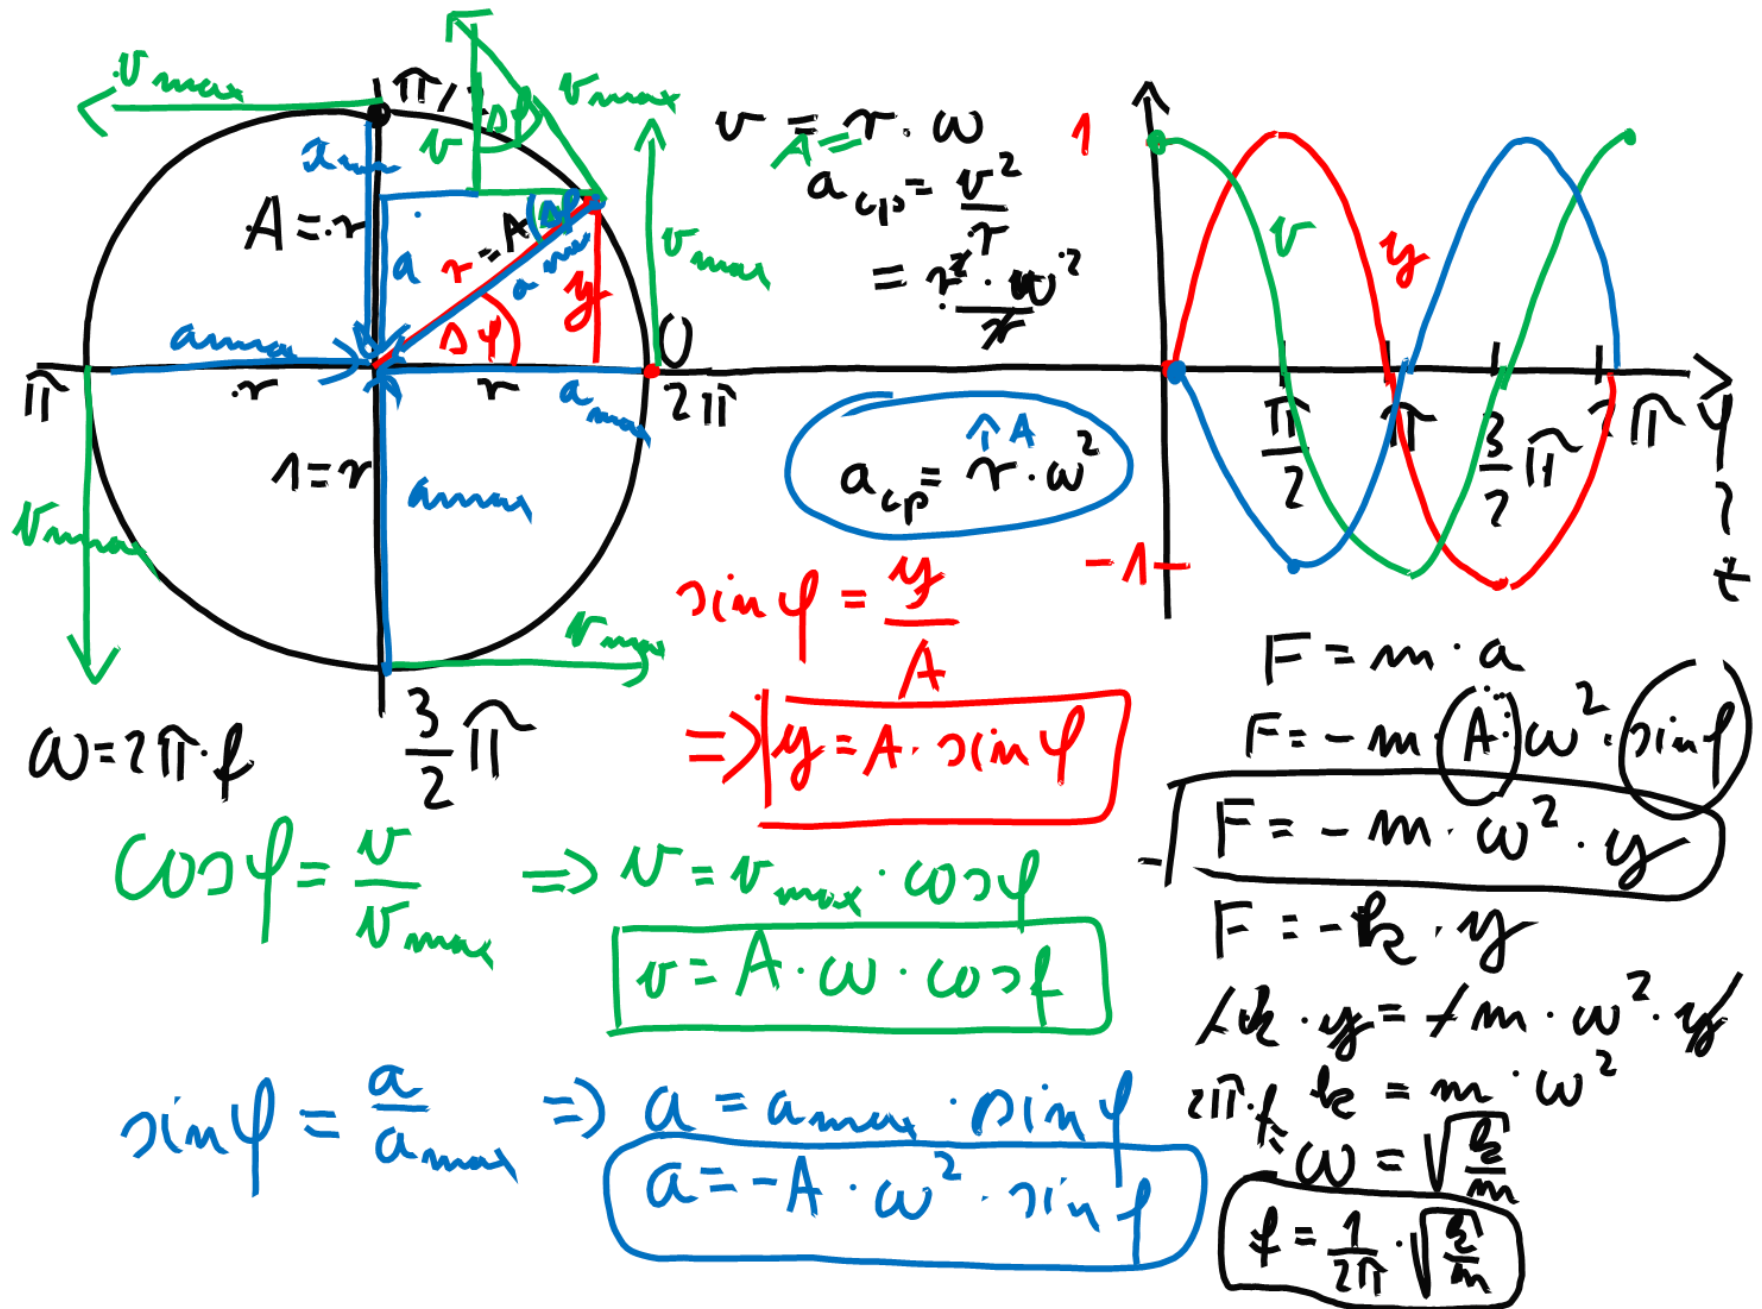 v max
π/2
v max
Δφ
v
a m
A = r
= A
Δφ
a
r
a m
y
v max
Δφ
a max
0
π
r
r
2π
a max
1 = r
a max
v max
v max
3/2 π
ω = 2π · f
v = r · ω
A =
a cp = v²/r
= r² · ω²/r
↑ A
a cp = r · ω²
1
v
y
π/2
π
3/2 π
2 π
φ
?
t
-1
sin φ = y/A
=> y = A · sin φ
cos φ = v/v max => v = v max · cos φ
v = A · ω · cos φ
sin φ = a/a max => a = a max · sin φ
a = -A · ω² · sin φ
F = m · a
F = - m · A · ω² · sin φ
F = - m · ω² · y
F = - k · y
- k · y = - m · ω² · y
k = m · ω²
2π · f = ω = √k/m
f = 1/2π · √k/m